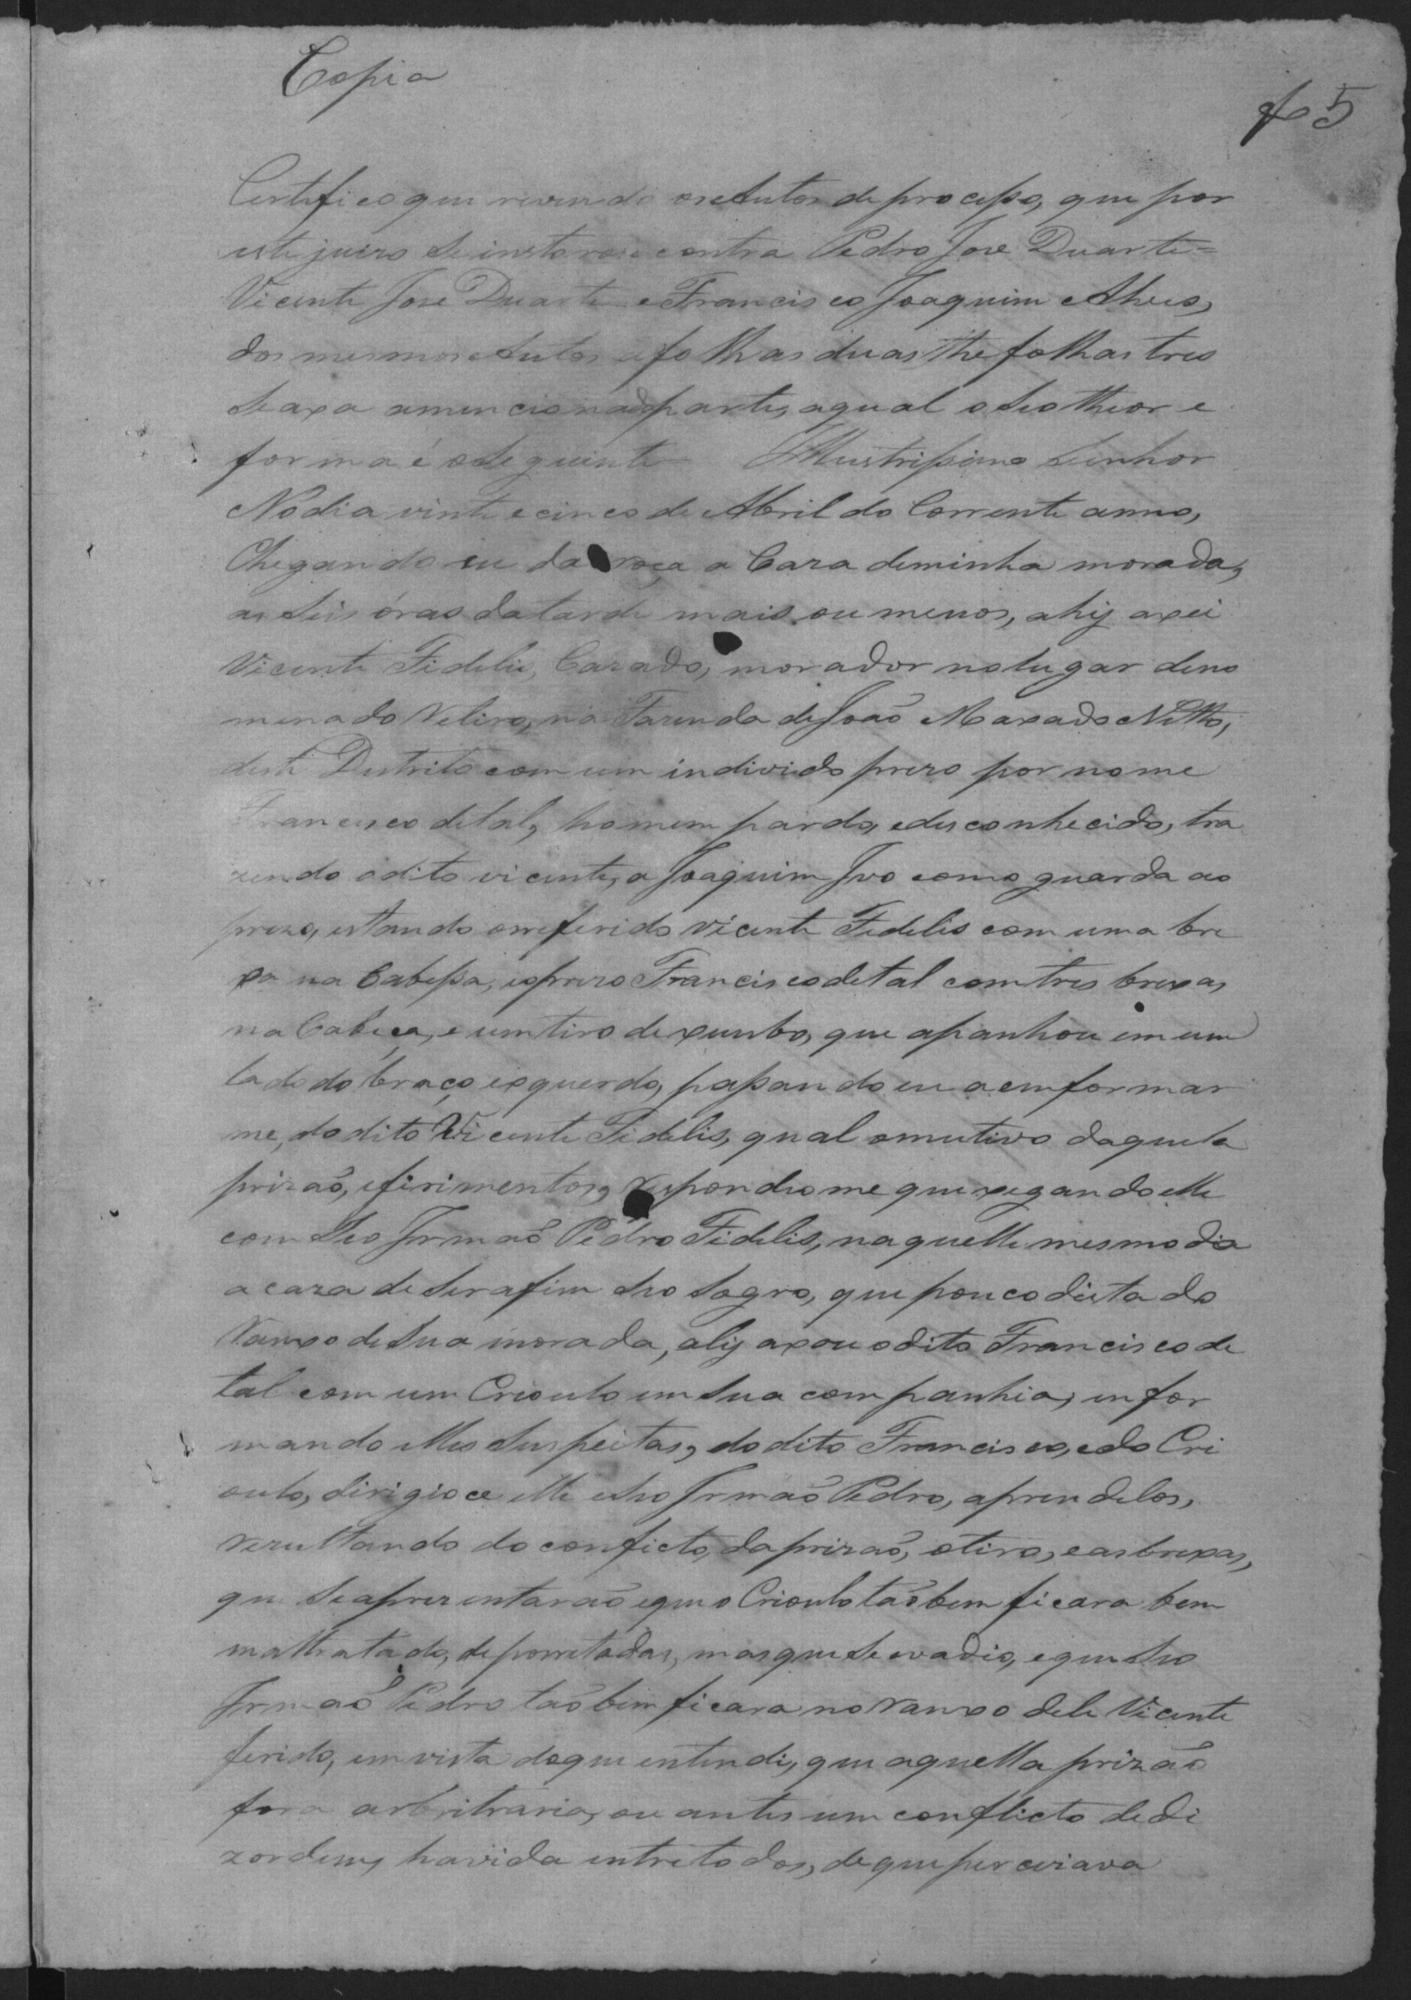 Copia
f 5
Certifico que revendo os Autos de processo, que por
este juizo se instorou contra Pedro Jose Duarte =
Vicente Jose Duarte e Francisco Joaquim Alves,
dos mesmos Autos a folhas duas the folhas tres
se axa a mencionada parte, a qual o seo theor e
forma é o seguinte Illustrissimo Senhor
No dia vinte e cinco de Abril do Corrente anno,
Chegando eu da roça a Caza de minha morada,
as seis óras da tarde mais ou menos, ahy axei
Vicente Fidelis, Cazado, morador no lugar deno
menado na Fazenda de João Maxado Netto,
deste Destrito com um individo prezo por nome
Francisco de tal, homem pardo, e desconhecido, tra
zendo o dito vicente, a Joaquim Ivo como guarda ao
prezo, estando o referido Vicente Fidelis com uma bre
xa na Cabessa, e o prezo Francisco de tal com tres brexas
na Cabeça, e um tiro de xumbo, que apanhou em um
lado do braço esquerdo, passando eu a emformar
me, do dito Vicente Fidelis, qual o mutivo daquela
prizaõ, e ferimentos, respondeo me que xegando elle
com seo Irmaõ Pedro Fidelis, naquelle mesmo dia
a caza de Serafim seo sogro, que pouco dista do
Ranxo de sua morada, aly axou o dito Francisco de
tal com um Crioulo em sua companhia, emfor
mando elles suspeitas, do dito Francisco, e do Cri
oulo, dirigioce elle e seo Irmaõ Pedro, a prendelos,
rezultando do conficto, da prizaõ, o tiro, e as brexas,
que se aprezentaraõ e que o Crioulo taõbem ficara bem
maltratado, de porretadas, mas que se evadio, e que seo
Irmaõ Pedro taõbem ficara no Ranxo dele Vicente
ferido, em vista do que entendi, que aquella prizaõ
fora arbritraria, ou antes um conflicto de di
zordem, havida entre todos, de que percizava